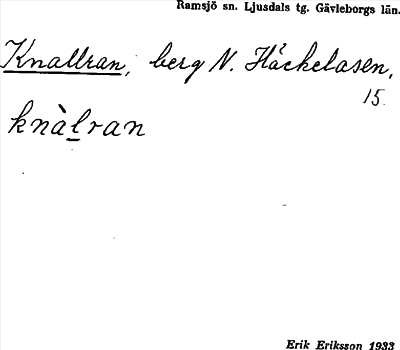 Ramsjö sn. Ljusdals tg. Gävleborgs län.
Knallran, berg N. Häckelåsen,
15.
knàlran
Erik Eriksson 1933